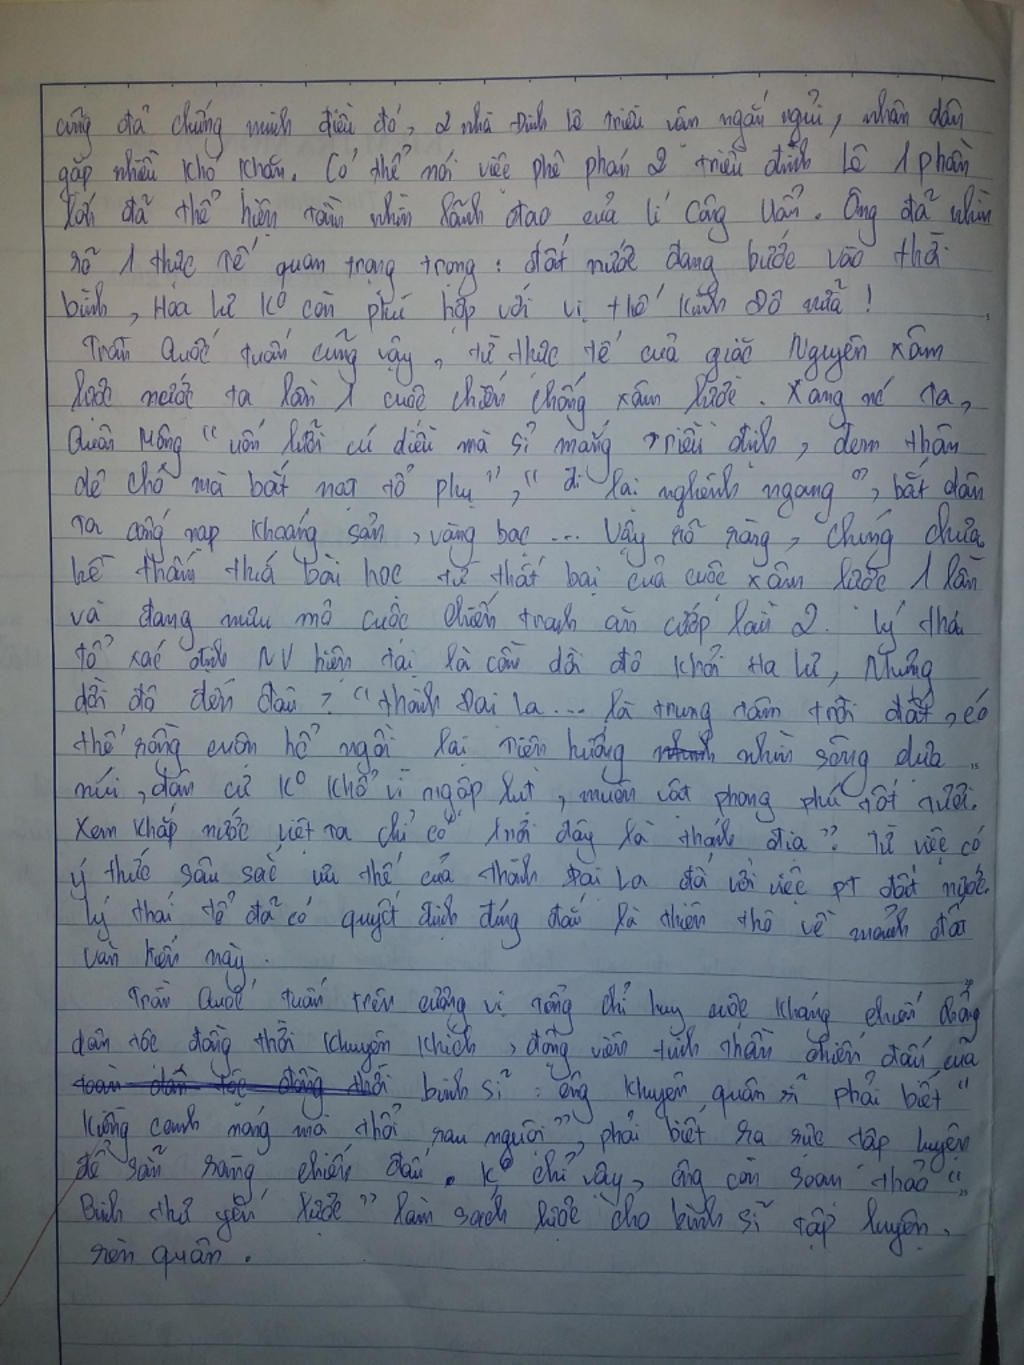 cũng đã chứng minh điều đó, 2 nhà Đinh Lê triều vận ngắn ngủi, nhân dân
gặp nhiều khó khăn. Có thể nói việc phê phán 2 triều đinh Lê 1 phần
lớn đã thể hiện tầm nhìn lãnh đạo của Lí Công Uẩn. Ông đã nhìn
rõ 1 thực tế quan trọng trọng : đất nước đang bước vào thời
bình, Hoa Lư K° còn phù hợp với vị thế Kinh Đô nữa !
Trần Quốc tuấn cũng vậy, từ thực tế của giặc Nguyên xâm
lược nước ta lần 1 cuộc chiến chống xâm lược. Xong nó ra,
Quân Mông " uốn lưỡi cú diều mà sỉ mắng triều đình, đem thân
dê chó mà bắt nạt tổ phụ", " đi lại nghênh ngang ", bắt dân
ta cống nạp khoáng sản, vàng bạc ... Vậy rõ ràng, chúng chưa
hề thấm thía bài học từ thất bại của cuộc xâm lược 1 lần
và đang mưu mô cuộc chiến tranh ăn cướp lần 2. Lý thái
tổ xác định NV hiện tại là cần dời đô khỏi Ha Lư, Nhưng
dời đô đến đâu ? " thành Đại La ... là trung tâm trời đất, có
thế rồng cuộn hổ ngồi lại tiện hướng nhìn sông dựa
núi, dân cư K° khổ vì ngập lụt, muôn vật phong phú tốt tươi.
Xem khắp nước việt ta chỉ có nơi đây là thánh địa". Từ việc có
ý thức sâu sắc ưu thế của thành Đại La đối với việc PT đất nước.
Lý thái tổ đã có quyết định đúng đắn là thiên đô về mảnh đất
văn hiến này.
Trần Quốc tuấn trên cương vị tổng chỉ huy cuộc kháng chiến chống
dân tộc đồng thời khuyên khích, động viên tinh thần chiến đấu của
toàn dân tộc đồng thời binh sĩ : ông khuyên quân sĩ phải biết "
Kiềng canh nóng mà thổi rau nguội", phải biết ra sức tập luyện
để sẵn sàng chiến đấu. K° chỉ vậy, ông còn soạn thảo "
Binh thư yếu lược " làm sách lược cho binh sĩ tập luyện,
rèn quân.